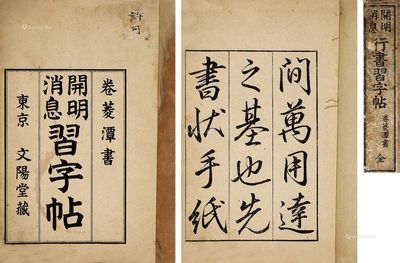 許可
卷菱潭書
開明消息習字帖
東京 文陽堂藏
间萬用達
之基也先
書状手紙
開明消息行書習字帖 卷菱潭書 全